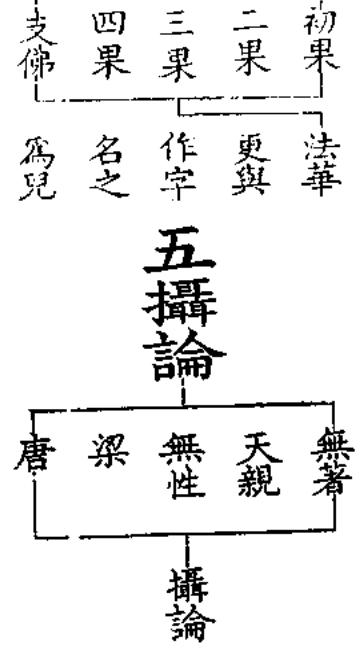 初果
二果
三果
四果
支佛
法華
更與
作字
名之
為兒
五攝論
無著
天親
無性
梁
唐
攝論